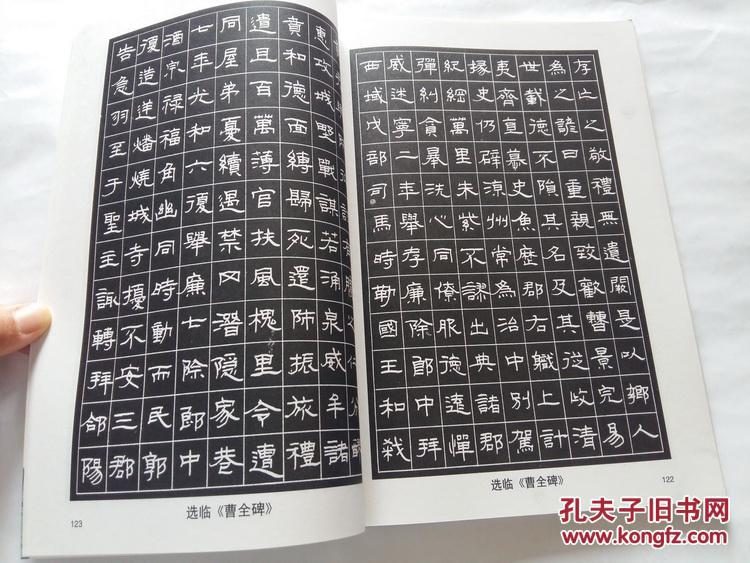 存亡之敬禮無遺闕是以鄉人
為之諺曰重親致歡曹景完易
世載德不隕其名及其從政清
夷齊直慕史魚歷郡右職上計
掾史仍辟涼州常為治中別駕
紀綱萬里朱紫不謬出典諸郡
彈糾貪暴洗心同僚服德遠憚
威建寧二年舉孝廉除郎中拜
西域戊部司馬時勒國王和殺
选临《曹全碑》
122
惠攻城野戰謀若涌泉威牟諸
賁和德面縛歸死還師振旅禮
遺且百萬薄官扶風槐里令遭
同屋弟憂續遇禁网潛隱家巷
七年光和六復舉廉七除郎中
酒泉祿福角幽同時動而民郭
復造逆燔燒城寺擾不安三郡
告急羽至于聖主諏轉拜郃陽
选临《曹全碑》
123
孔夫子旧书网
www.kongfz.com